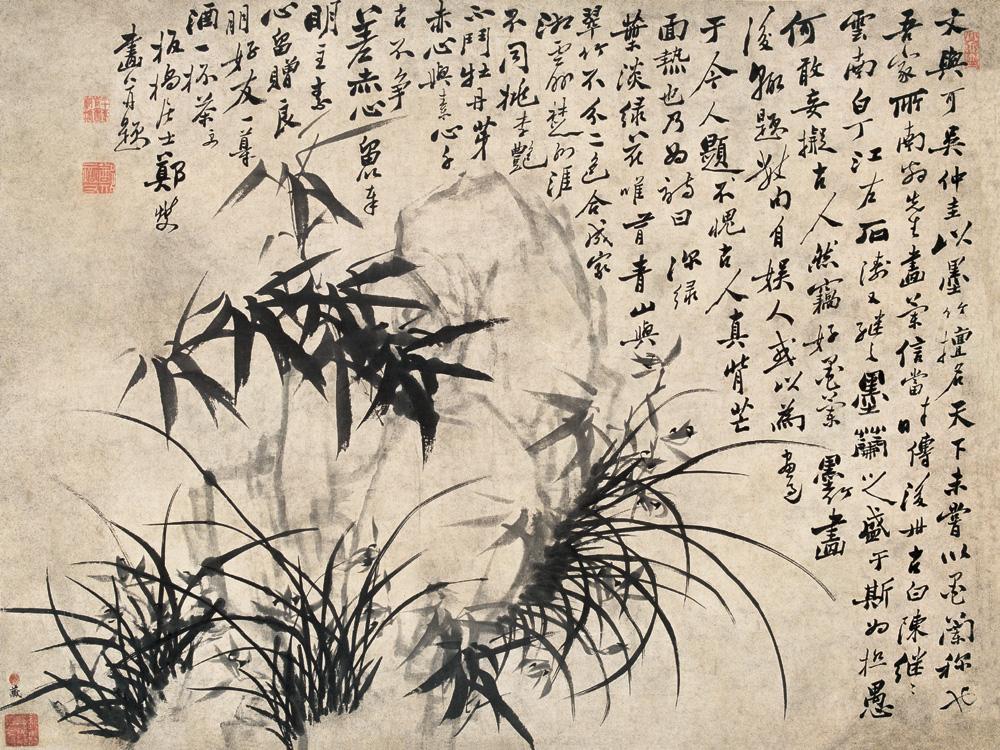 文與可吳仲圭以墨竹擅名天下未嘗以墨蘭称也
吾家所南翁先生畫蘭信當時傳後世古白陳继之
雲南白丁江左石濤又继之墨蘭之盛于斯为极愚
何敢妄擬古人然竊好墨蘭墨竹畫
後輒題數句自娱人或以為畫遜
于今人題不愧古人真背芒
面熱也乃为詩曰 深绿
葉淡绿花唯有青山與
翠竹不分二色合成家
湘雲外楚江涯
不同桃李艷
不鬥牡丹芽
赤心與素心子
古不争
差赤心留以奉
明主素
心留贈良
朋好友一尊
酒一杯茶
板橋居士鄭燮
畫并題
藏